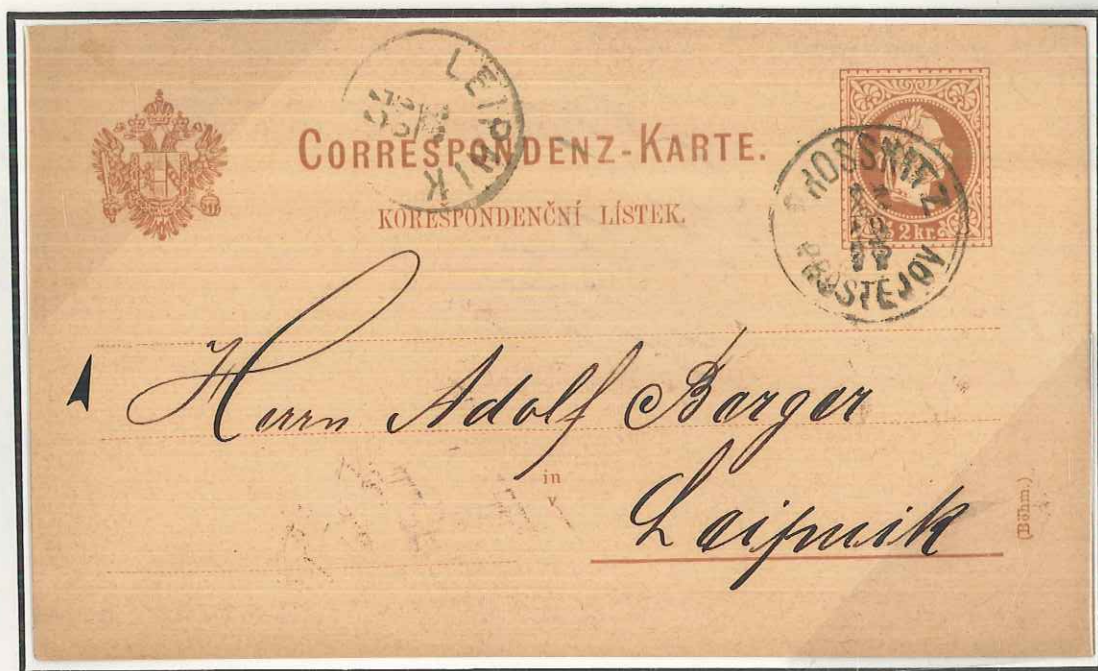 LEIPNIK
CORRESPONDENZ-KARTE.
KORESPONDENČNÍ LÍSTEK.
2 kr.
PROSSNITZ
PROSTĚJOV
Herrn Adolf Berger
in
v
Leipnik
(Böhm.)